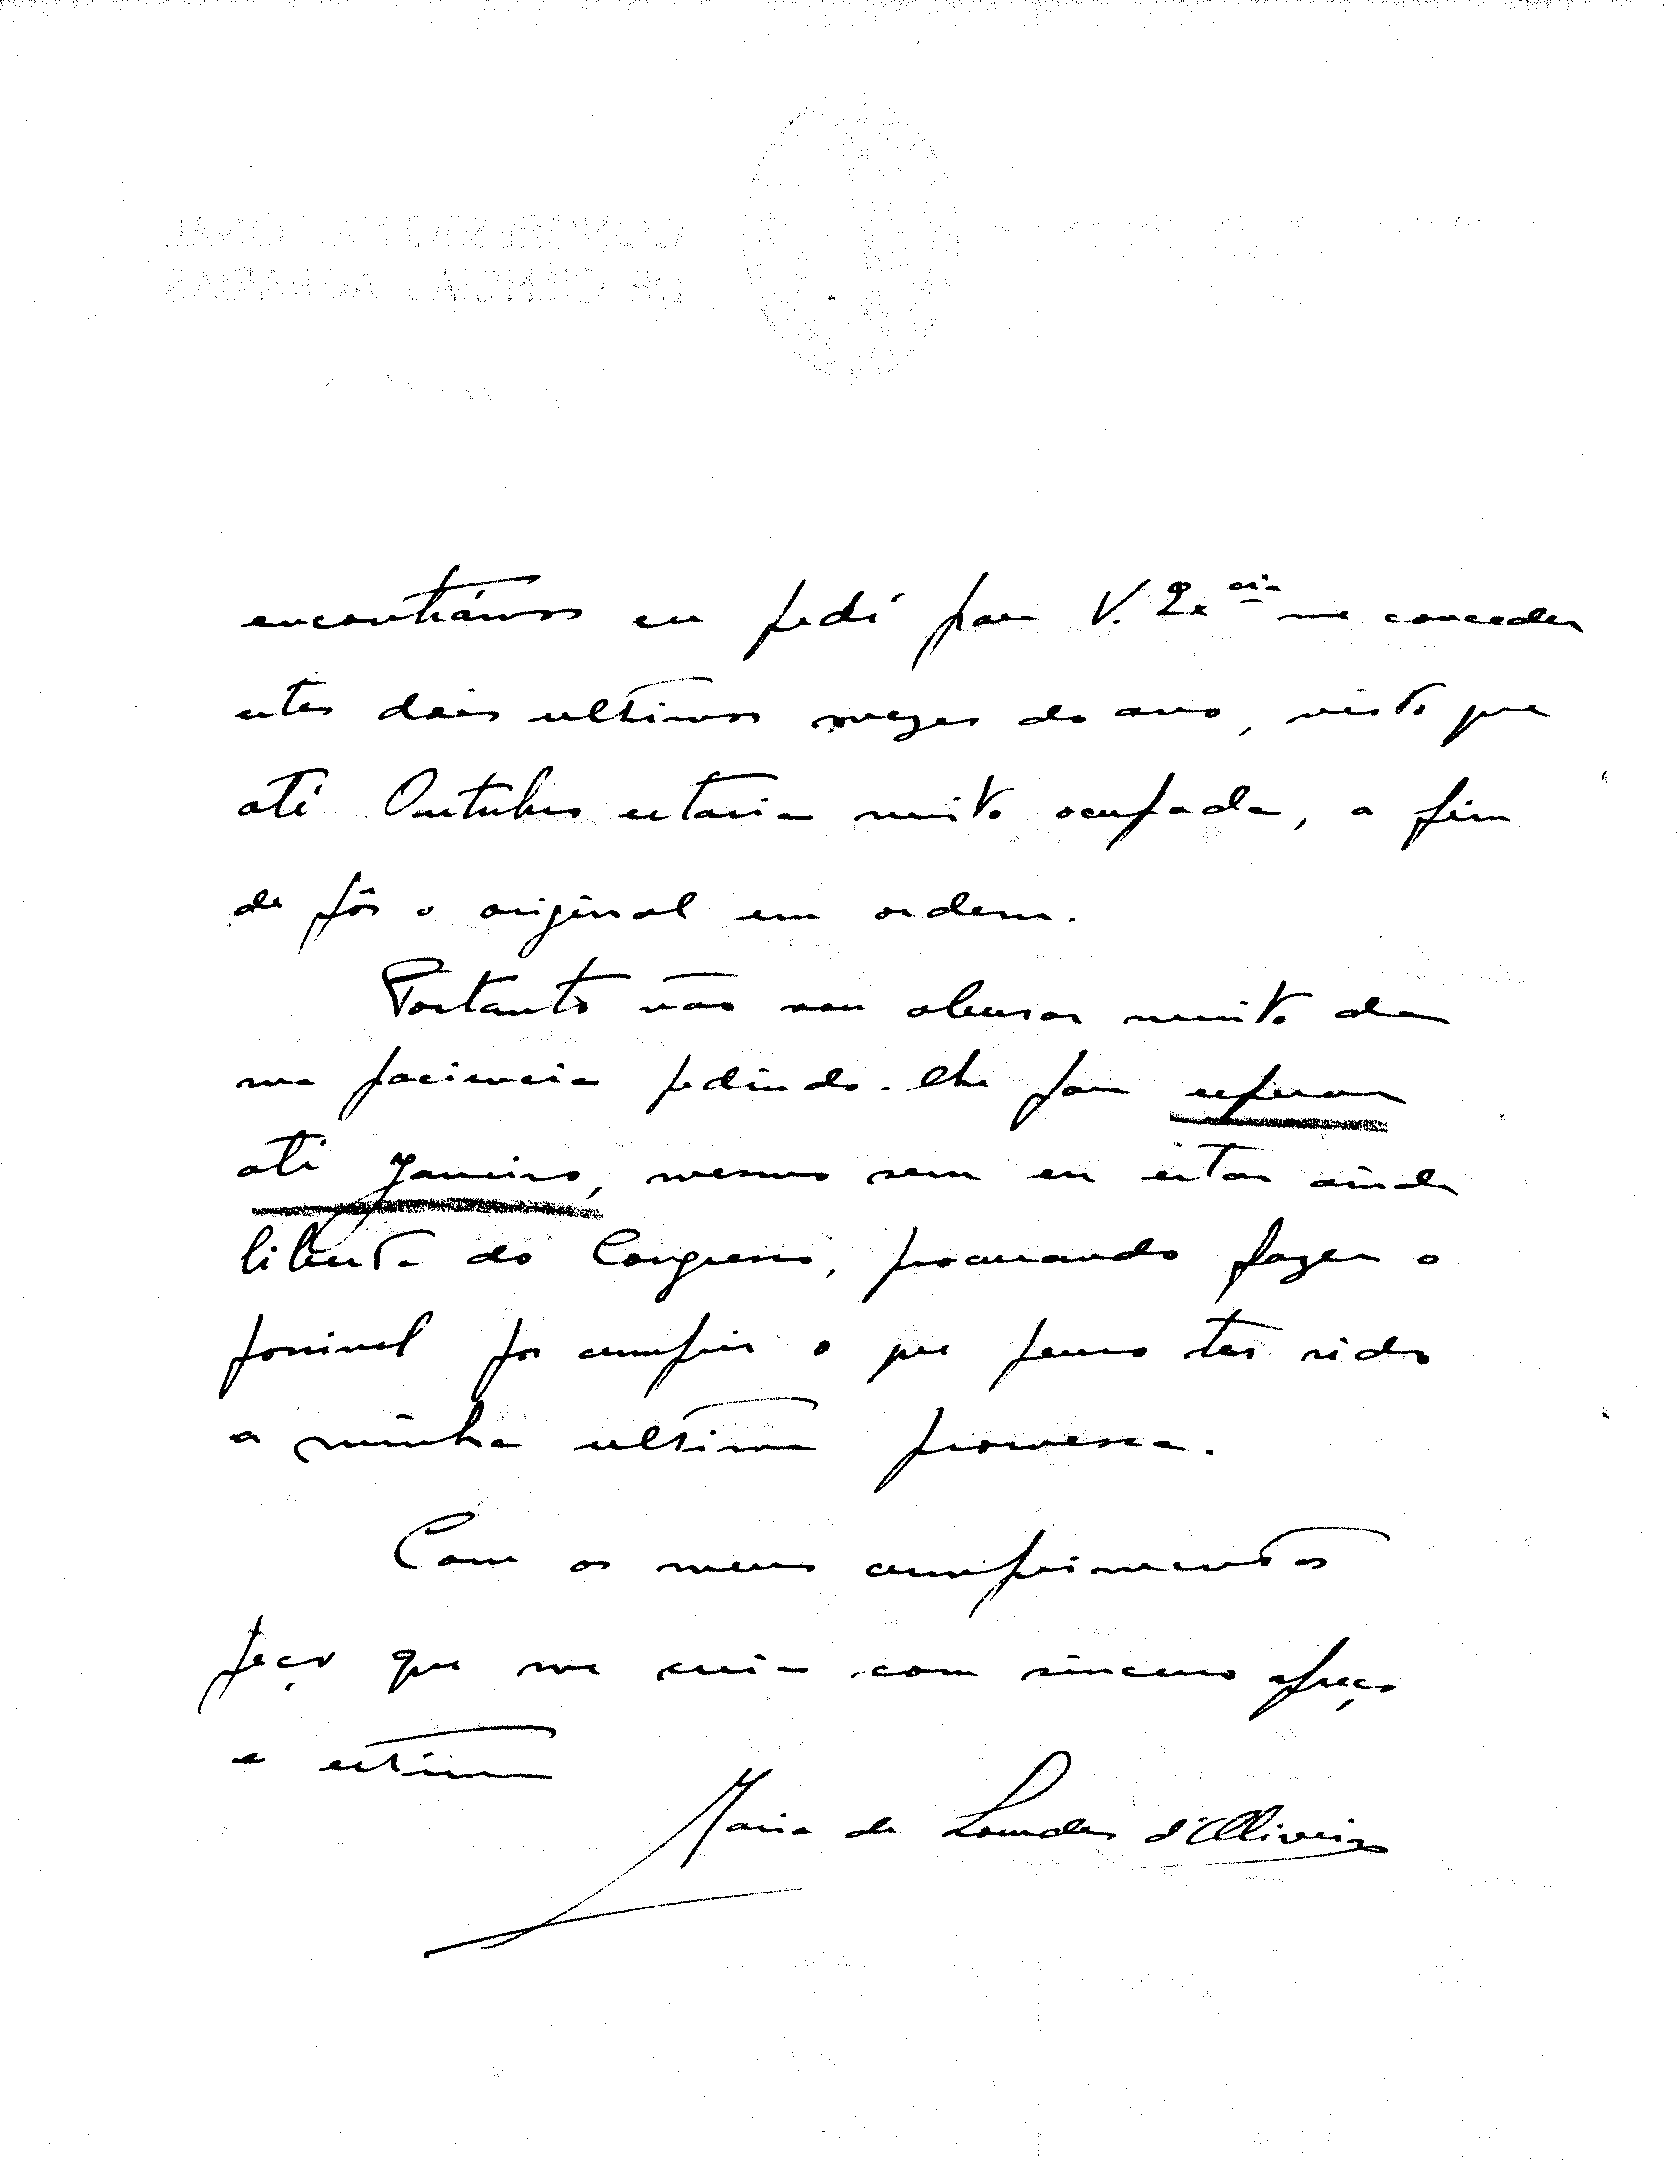 encontrámos eu pedí para V. Ex.cia me conceder
estes dois ultimos mezes do ano, visto que
até Outubro estaria muito ocupada, a fim
de pôr o original em ordem.
Portanto não vou abusar muito da
sua paciencia pedindo-lhe para esperar
até Janeiro, mesmo sem eu estar ainda
liberta do Congresso, procurando fazer o
possivel por cumprir o que penso ter sido
a minha ultima promessa.
Com os meus cumprimentos
peço que me creia com sincero apreço
e estima
Maria de Lourdes d'Oliveira